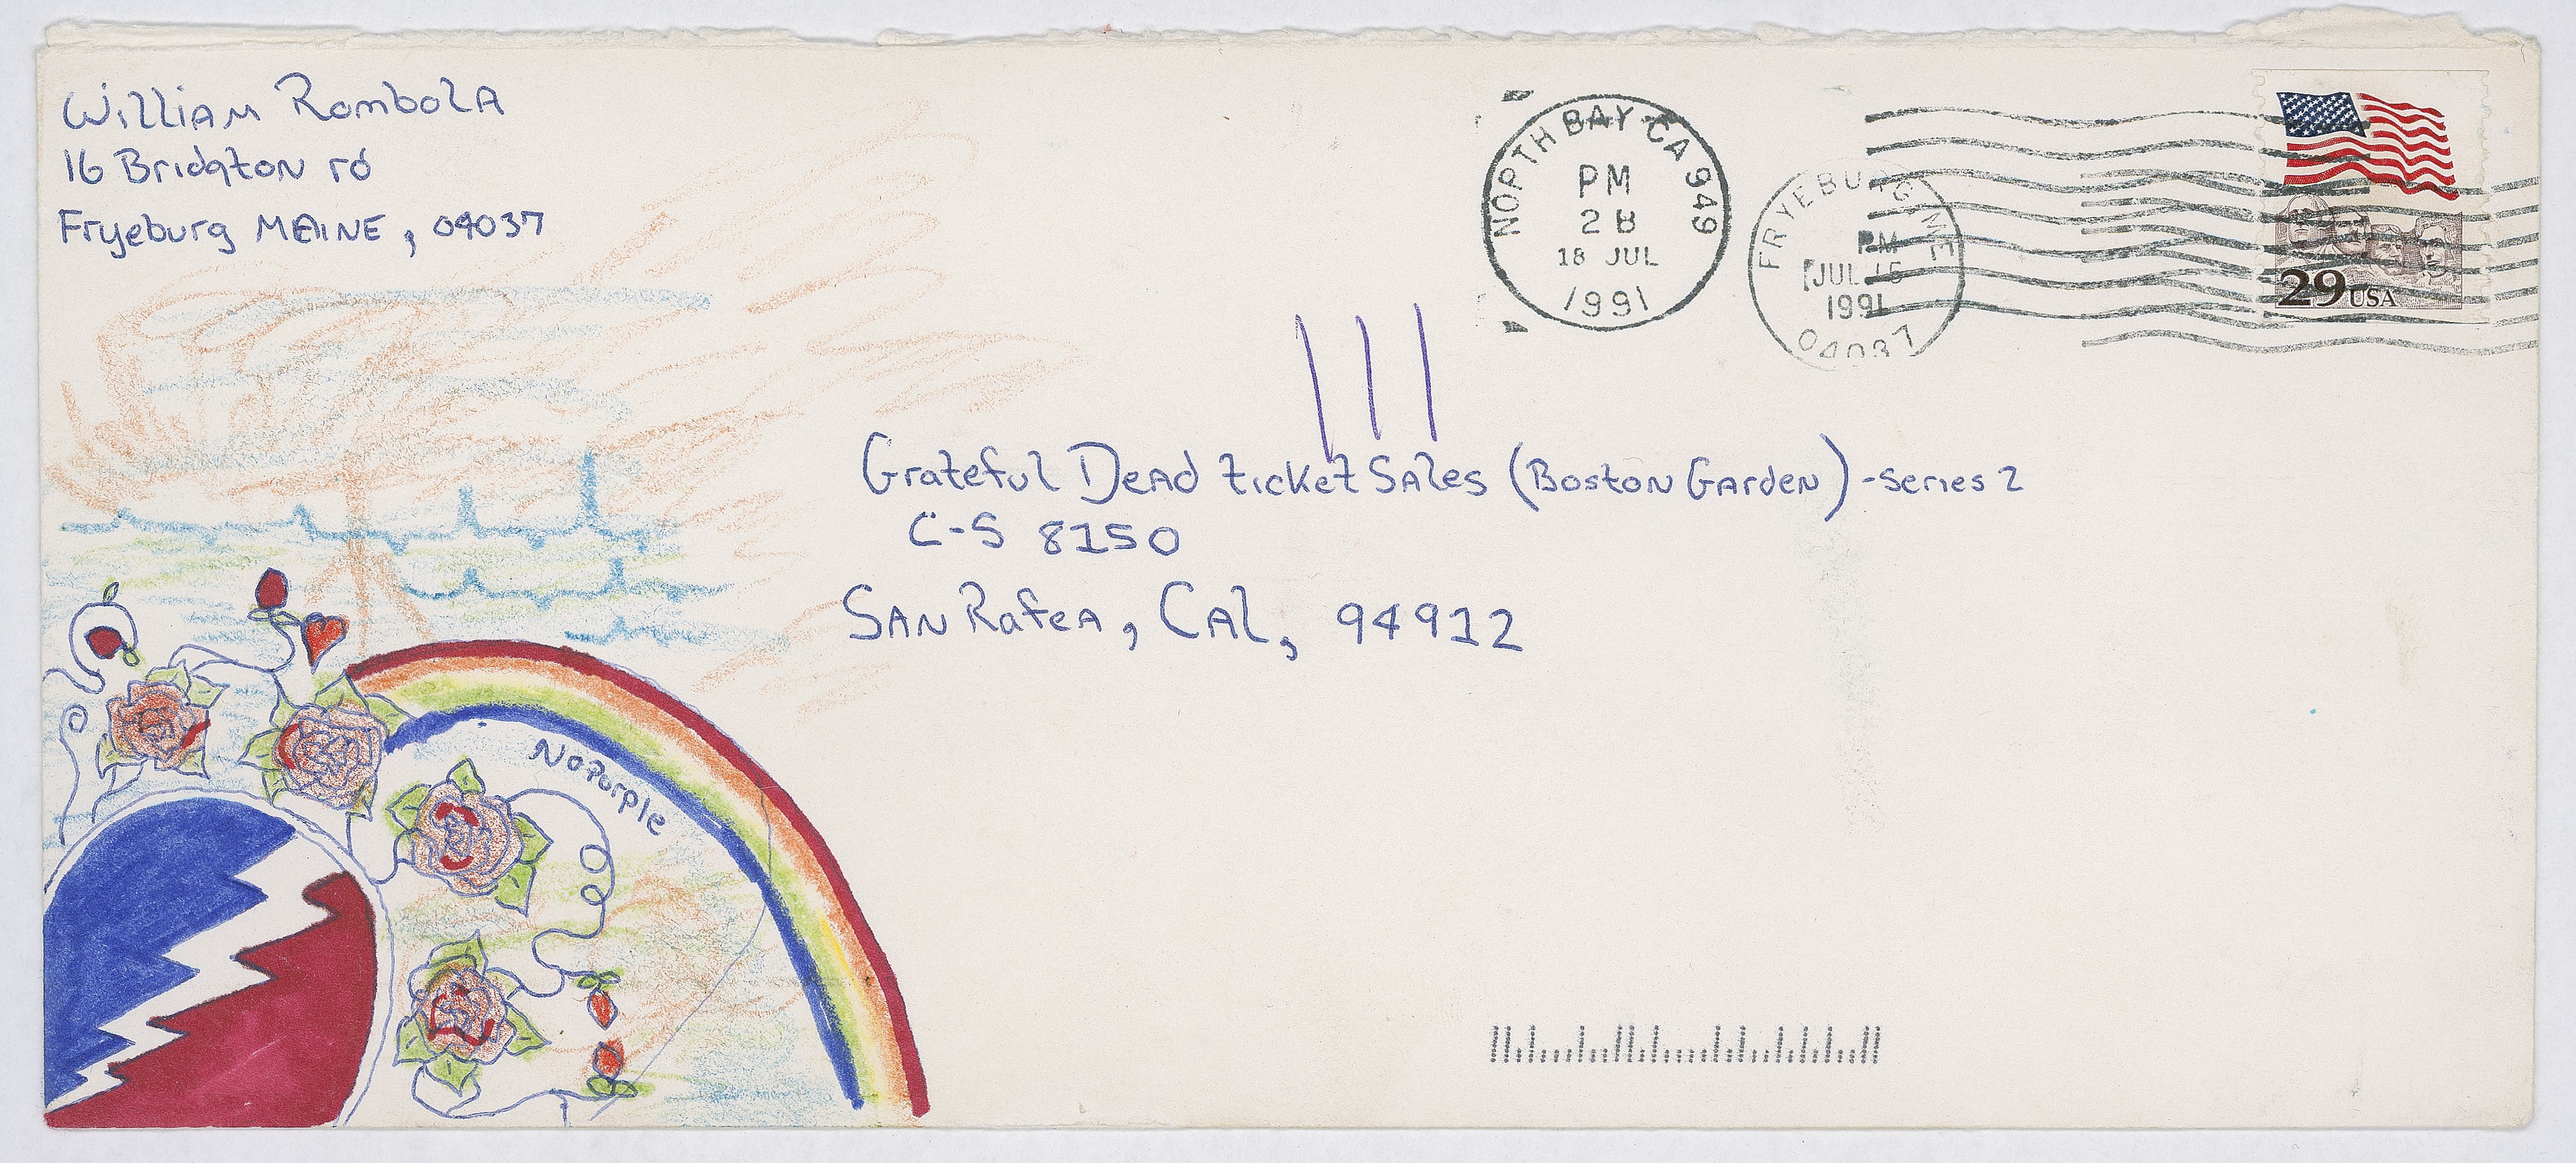 William Rombola
16 Bridgton rd
Fryeburg MAINE, 04037
NORTH BAY CA 949
PM
2 B
18 JUL
1991
FRYEBURG ME
PM
JUL 15
1991
04037
29 USA
Grateful Dead ticket Sales (Boston Garden) - series 2
C-S 8150
San Rafea, Cal, 94912
No Purple